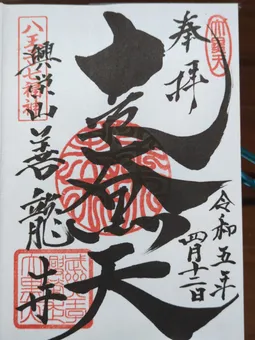 奉拝
令和五年
四月十二日
大黒天
八王子七福神
善龍寺